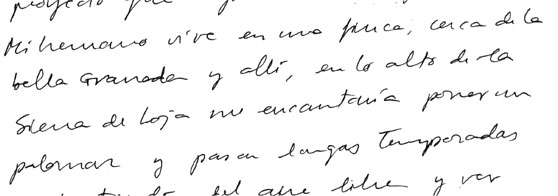 proyecto que
Mi hermano vive en una finca, cerca de la
bella Granada y allí, en lo alto de la
Sierra de Loja me encantaría poner un
palomar y pasar largas temporadas
del aire libre y ver